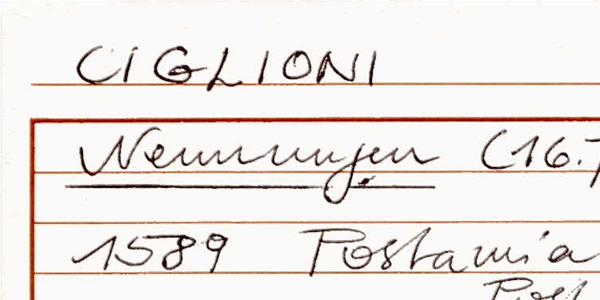 CIGLIONI
Nennungen (16.
1589 Postamia
Post